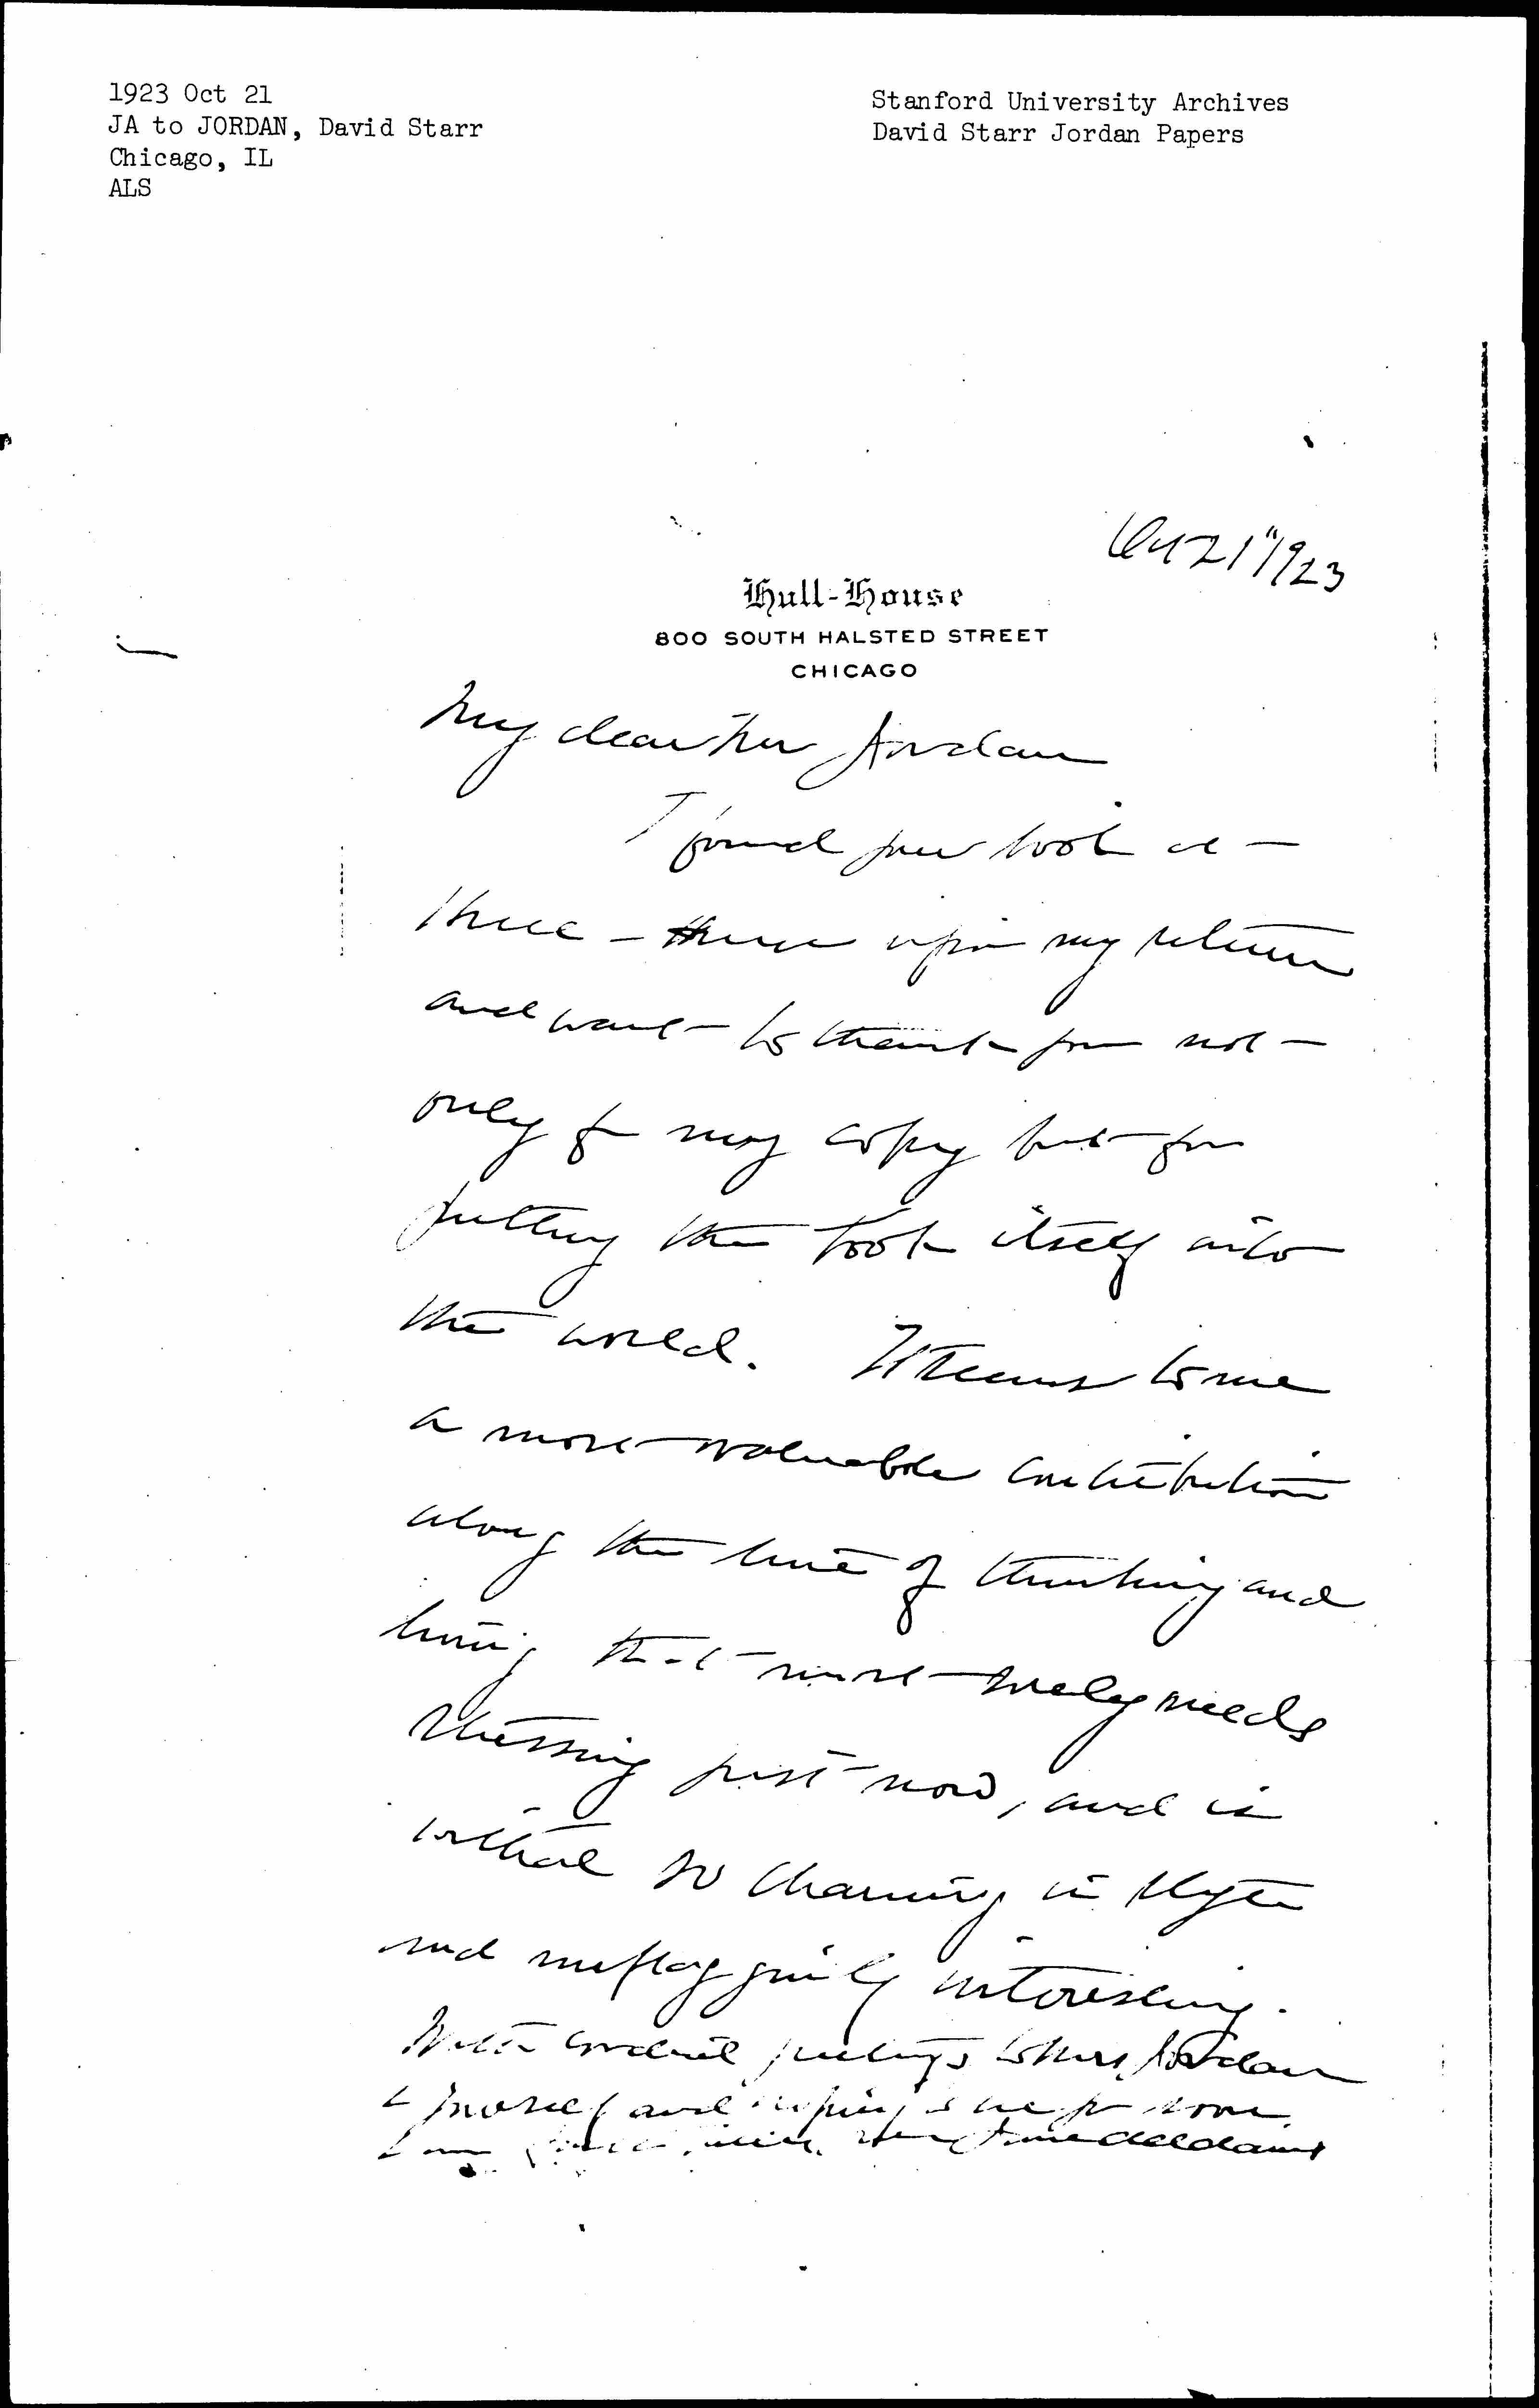 1923 Oct 21
JA to JORDAN, David Starr
Chicago, IL
ALS
Stanford University Archives
David Starr Jordan Papers
Oct 21" 1923
Hull-House
800 SOUTH HALSTED STREET
CHICAGO
My dear Mr Jordan
I found your book
upon my return
and want to thank you not
only for my copy but for
putting the book itself into
the world. It seems to me
a most valuable contribution
along the line of thinking and
living that most surely needs
stressing just now, and is
withal so charming in style
and unflaggingly interesting.
With cordial greetings to Mrs Jordan
& yourself and hoping to see you soon
I am Jane Addams